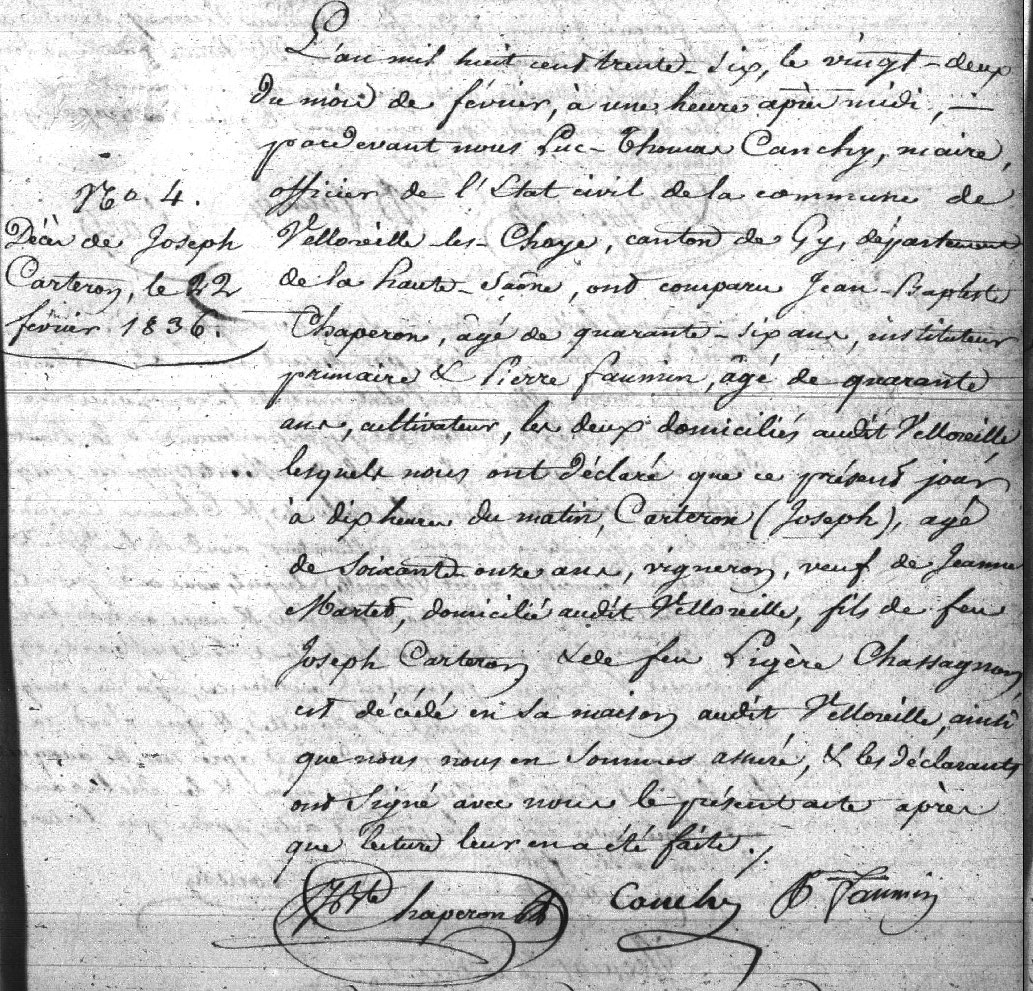 L'an mil huit cent trente-six, le vingt-deux
du mois de février, à une heure après midi, —
pardevant nous Luc-Thomas Cauchy, maire,
officier de l'État civil de la commune de
Velloreille-les-Choye, canton de Gy, département
de la haute-Saône, ont comparu Jean-Baptiste
Chaperon, âgé de quarante-six ans, instituteur
primaire & Pierre faumin, âgé de quarante
ans, cultivateur, les deux domiciliés audit Velloreille
lesquels nous ont déclaré que ce présent jour
à dix heures du matin, Carteron (Joseph), agé
de soixante onze ans, vigneron, veuf de Jeanne
Martet, domicilié audit Velloreille, fils de feu
Joseph Carteron & de feu Ligère Chassagnon
est décédé en sa maison audit Velloreille, ainsi
que nous nous en sommes assuré, & les déclarants
ont signé avec nous le présent acte après
que lecture leur en a été faite.
No. 4.
Décès de Joseph
Carteron, le 22
février 1836.
JBte Chaperon
Cauchy
P Faumin